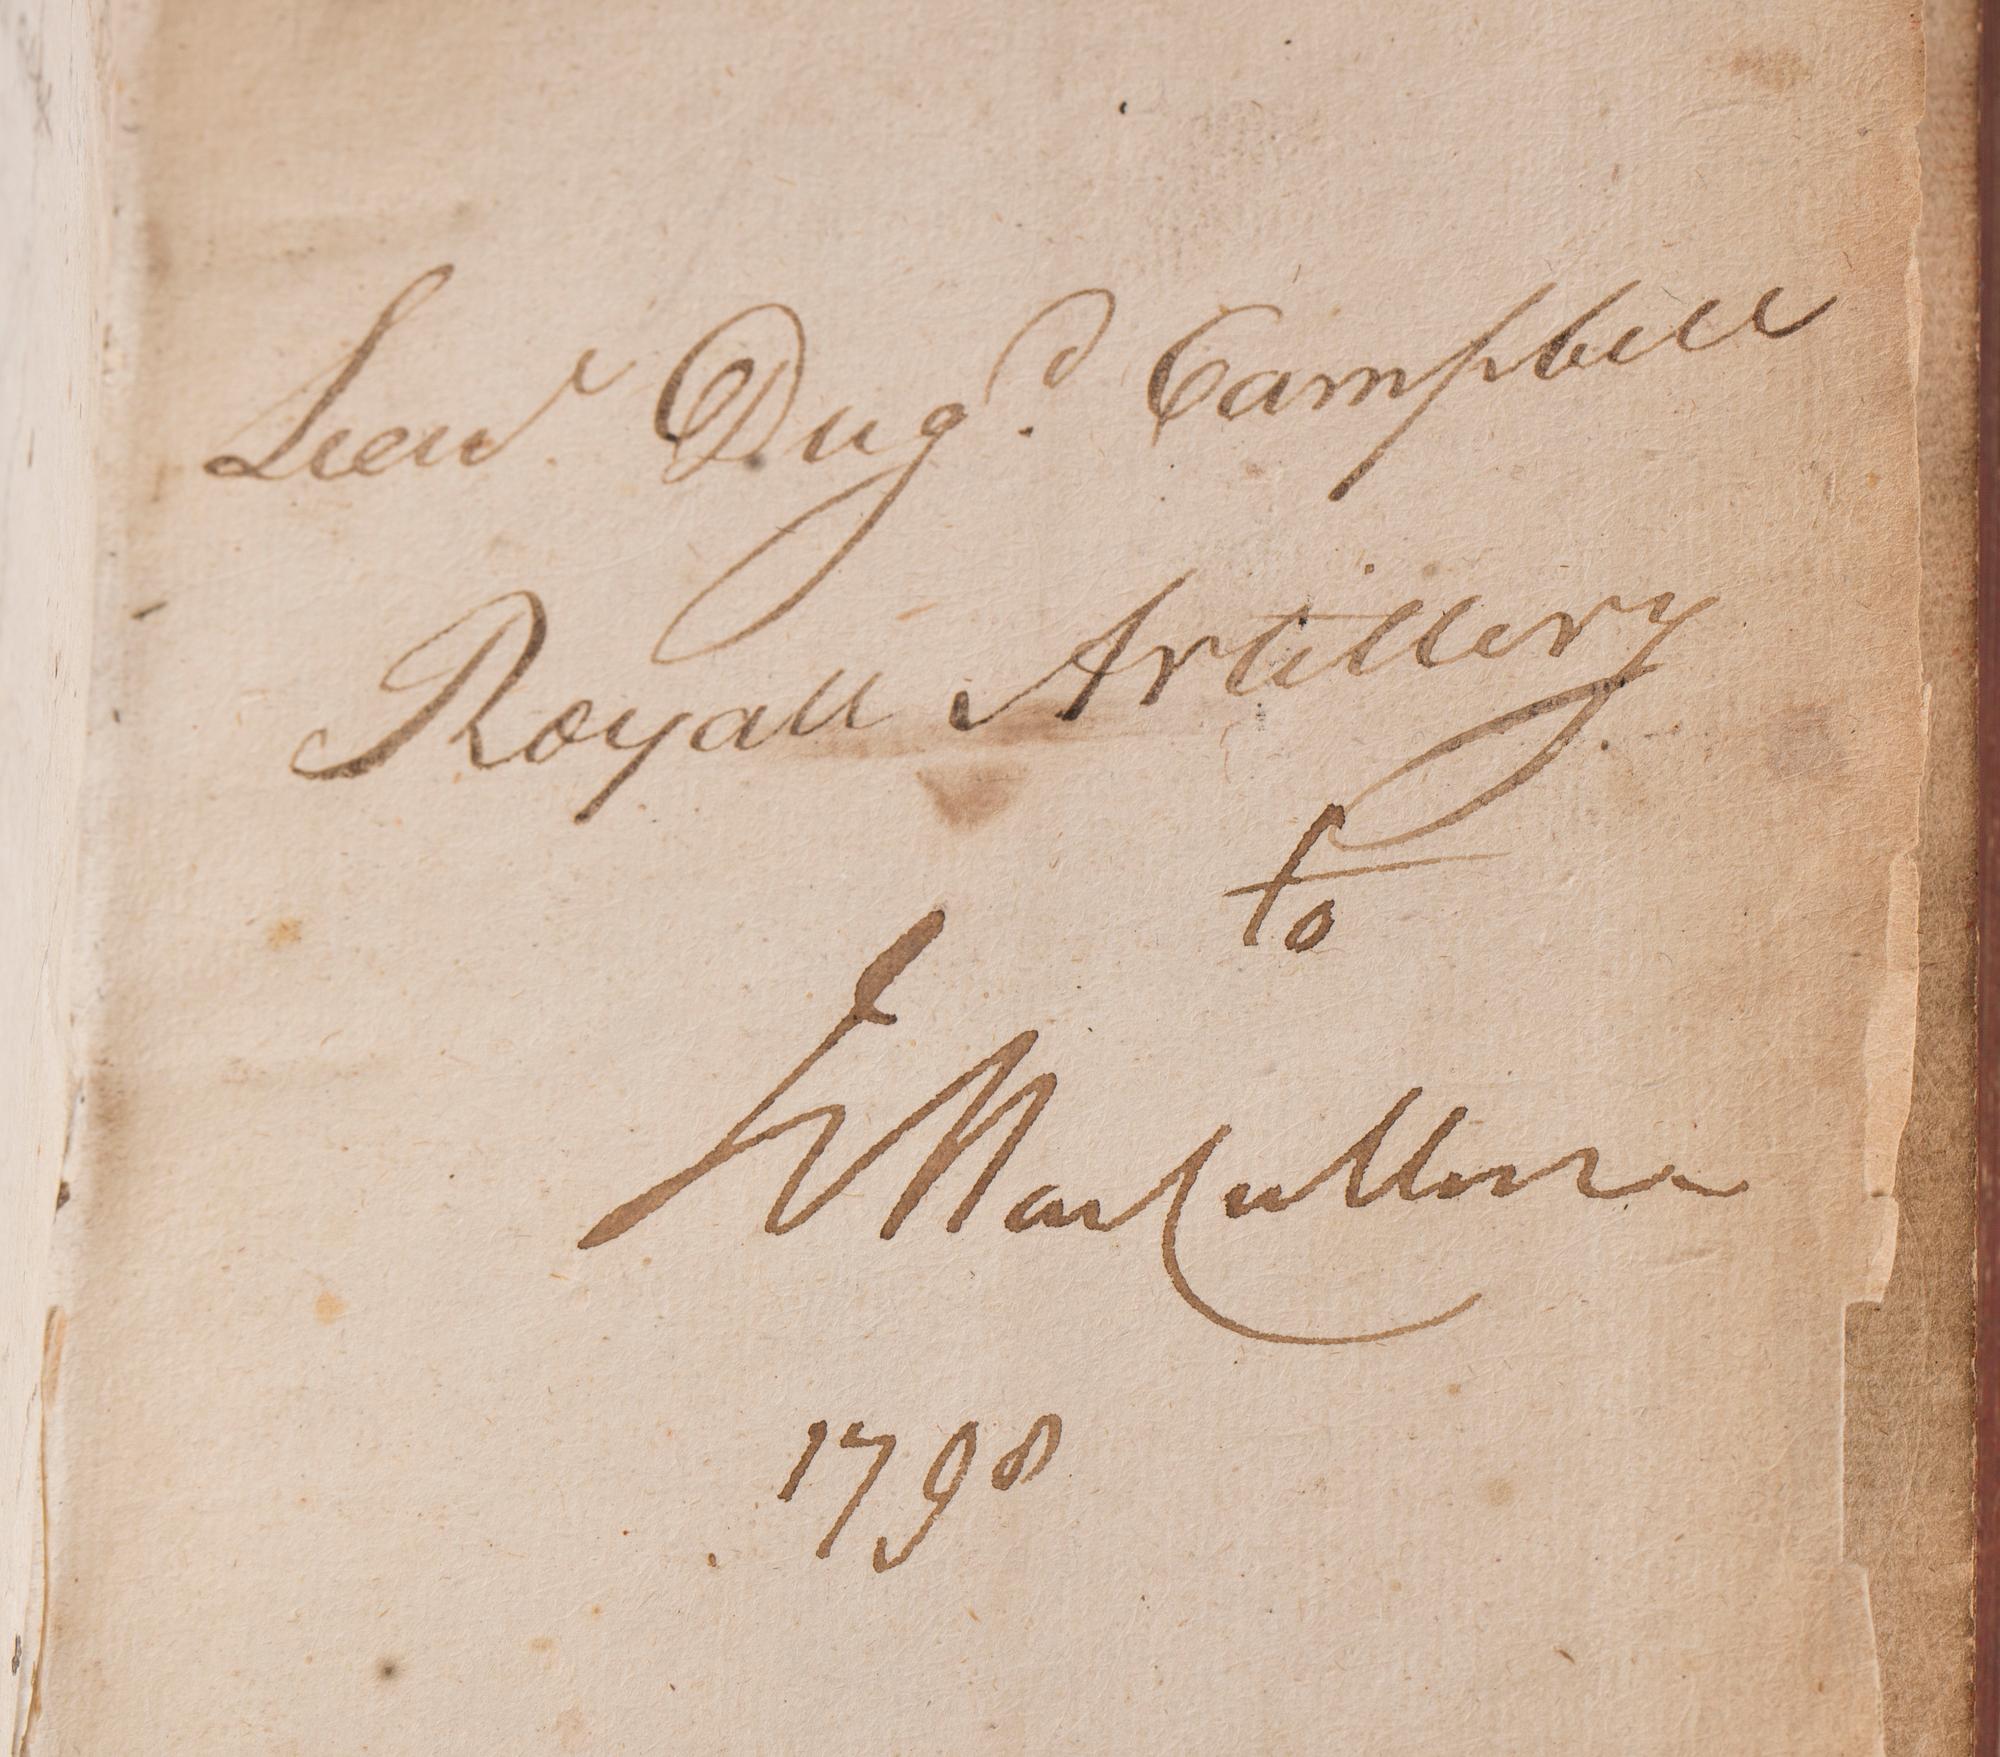 Lieut Dug.d Campbell
Royall Artillery
to
E MacCullom
1798